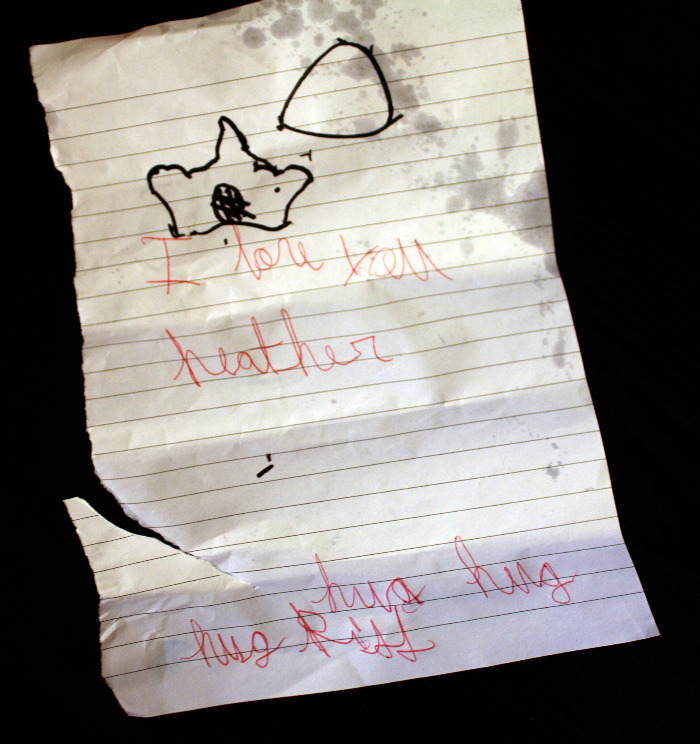 I love you
heather
hug hug
hug kiss